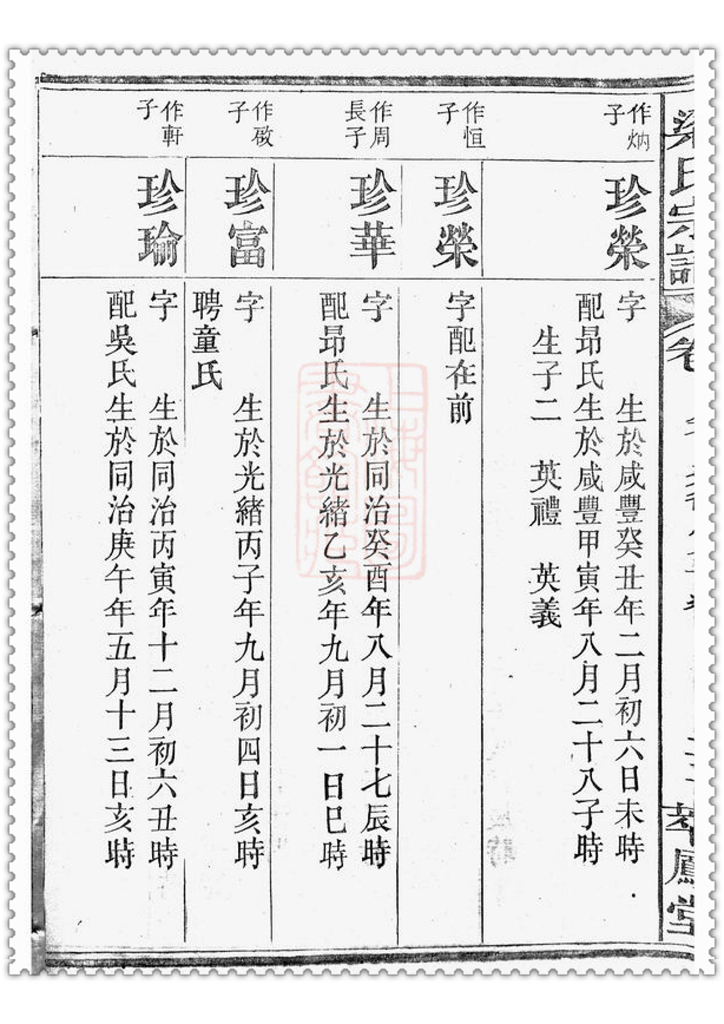 梁氏宗譜
卷
萃鳳堂
作炳子
珍榮
字　生於咸豐癸丑年二月初六日未時
配昂氏生於咸豐甲寅年八月二十八子時
生子二　英禮　英義
作恒子
珍榮
字配在前
作周長子
珍華
字　生於同治癸酉年八月二十七辰時
配昂氏生於光緒乙亥年九月初一日巳時
作敬子
珍富
字　生於光緒丙子年九月初四日亥時
聘童氏
作軒子
珍瑜
字　生於同治丙寅年十二月初六丑時
配吳氏生於同治庚午年五月十三日亥時